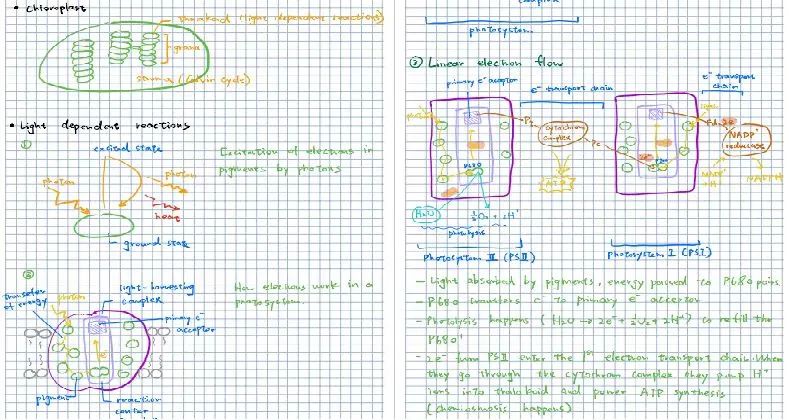 • Chloroplast
thylakoid (light dependent reactions)
grana
stroma (Calvin cycle)
• Light dependent reactions
①
excited state
photon
photon
heat
ground state
Excitation of electrons in
pigments by photons
②
transfer
of energy
photon
light-harvesting
complex
primary e⁻
acceptor
e⁻
pigment
reaction
center
How electrons work in a
photosystem.
complex
photosystem.
③ Linear electron flow
primary e⁻ acceptor
e⁻ transport chain
e⁻ transport
chain
photon
Pq
cytochrom
complex
Pc
ATP
P680
H₂O
½O₂ + 2H⁺
photolysis
light
Fd
NADP⁺
reductase
NADP⁺
+ H⁺
NADPH
Photosystem II (PSII)
Photosystem I (PSI)
– Light absorbed by pigments, energy passed to P680 pairs
– P680 transfers e⁻ to primary e⁻ acceptor
– Photolysis happens (H₂O → 2e⁻ + ½O₂ + 2H⁺) to refill the
P680⁺
– 2e⁻ from PSII enter the 1st electron transport chain. When
they go through the cytochrom complex they pump H⁺
ions into thylakoid and power ATP synthesis
(chemiosmosis happens)